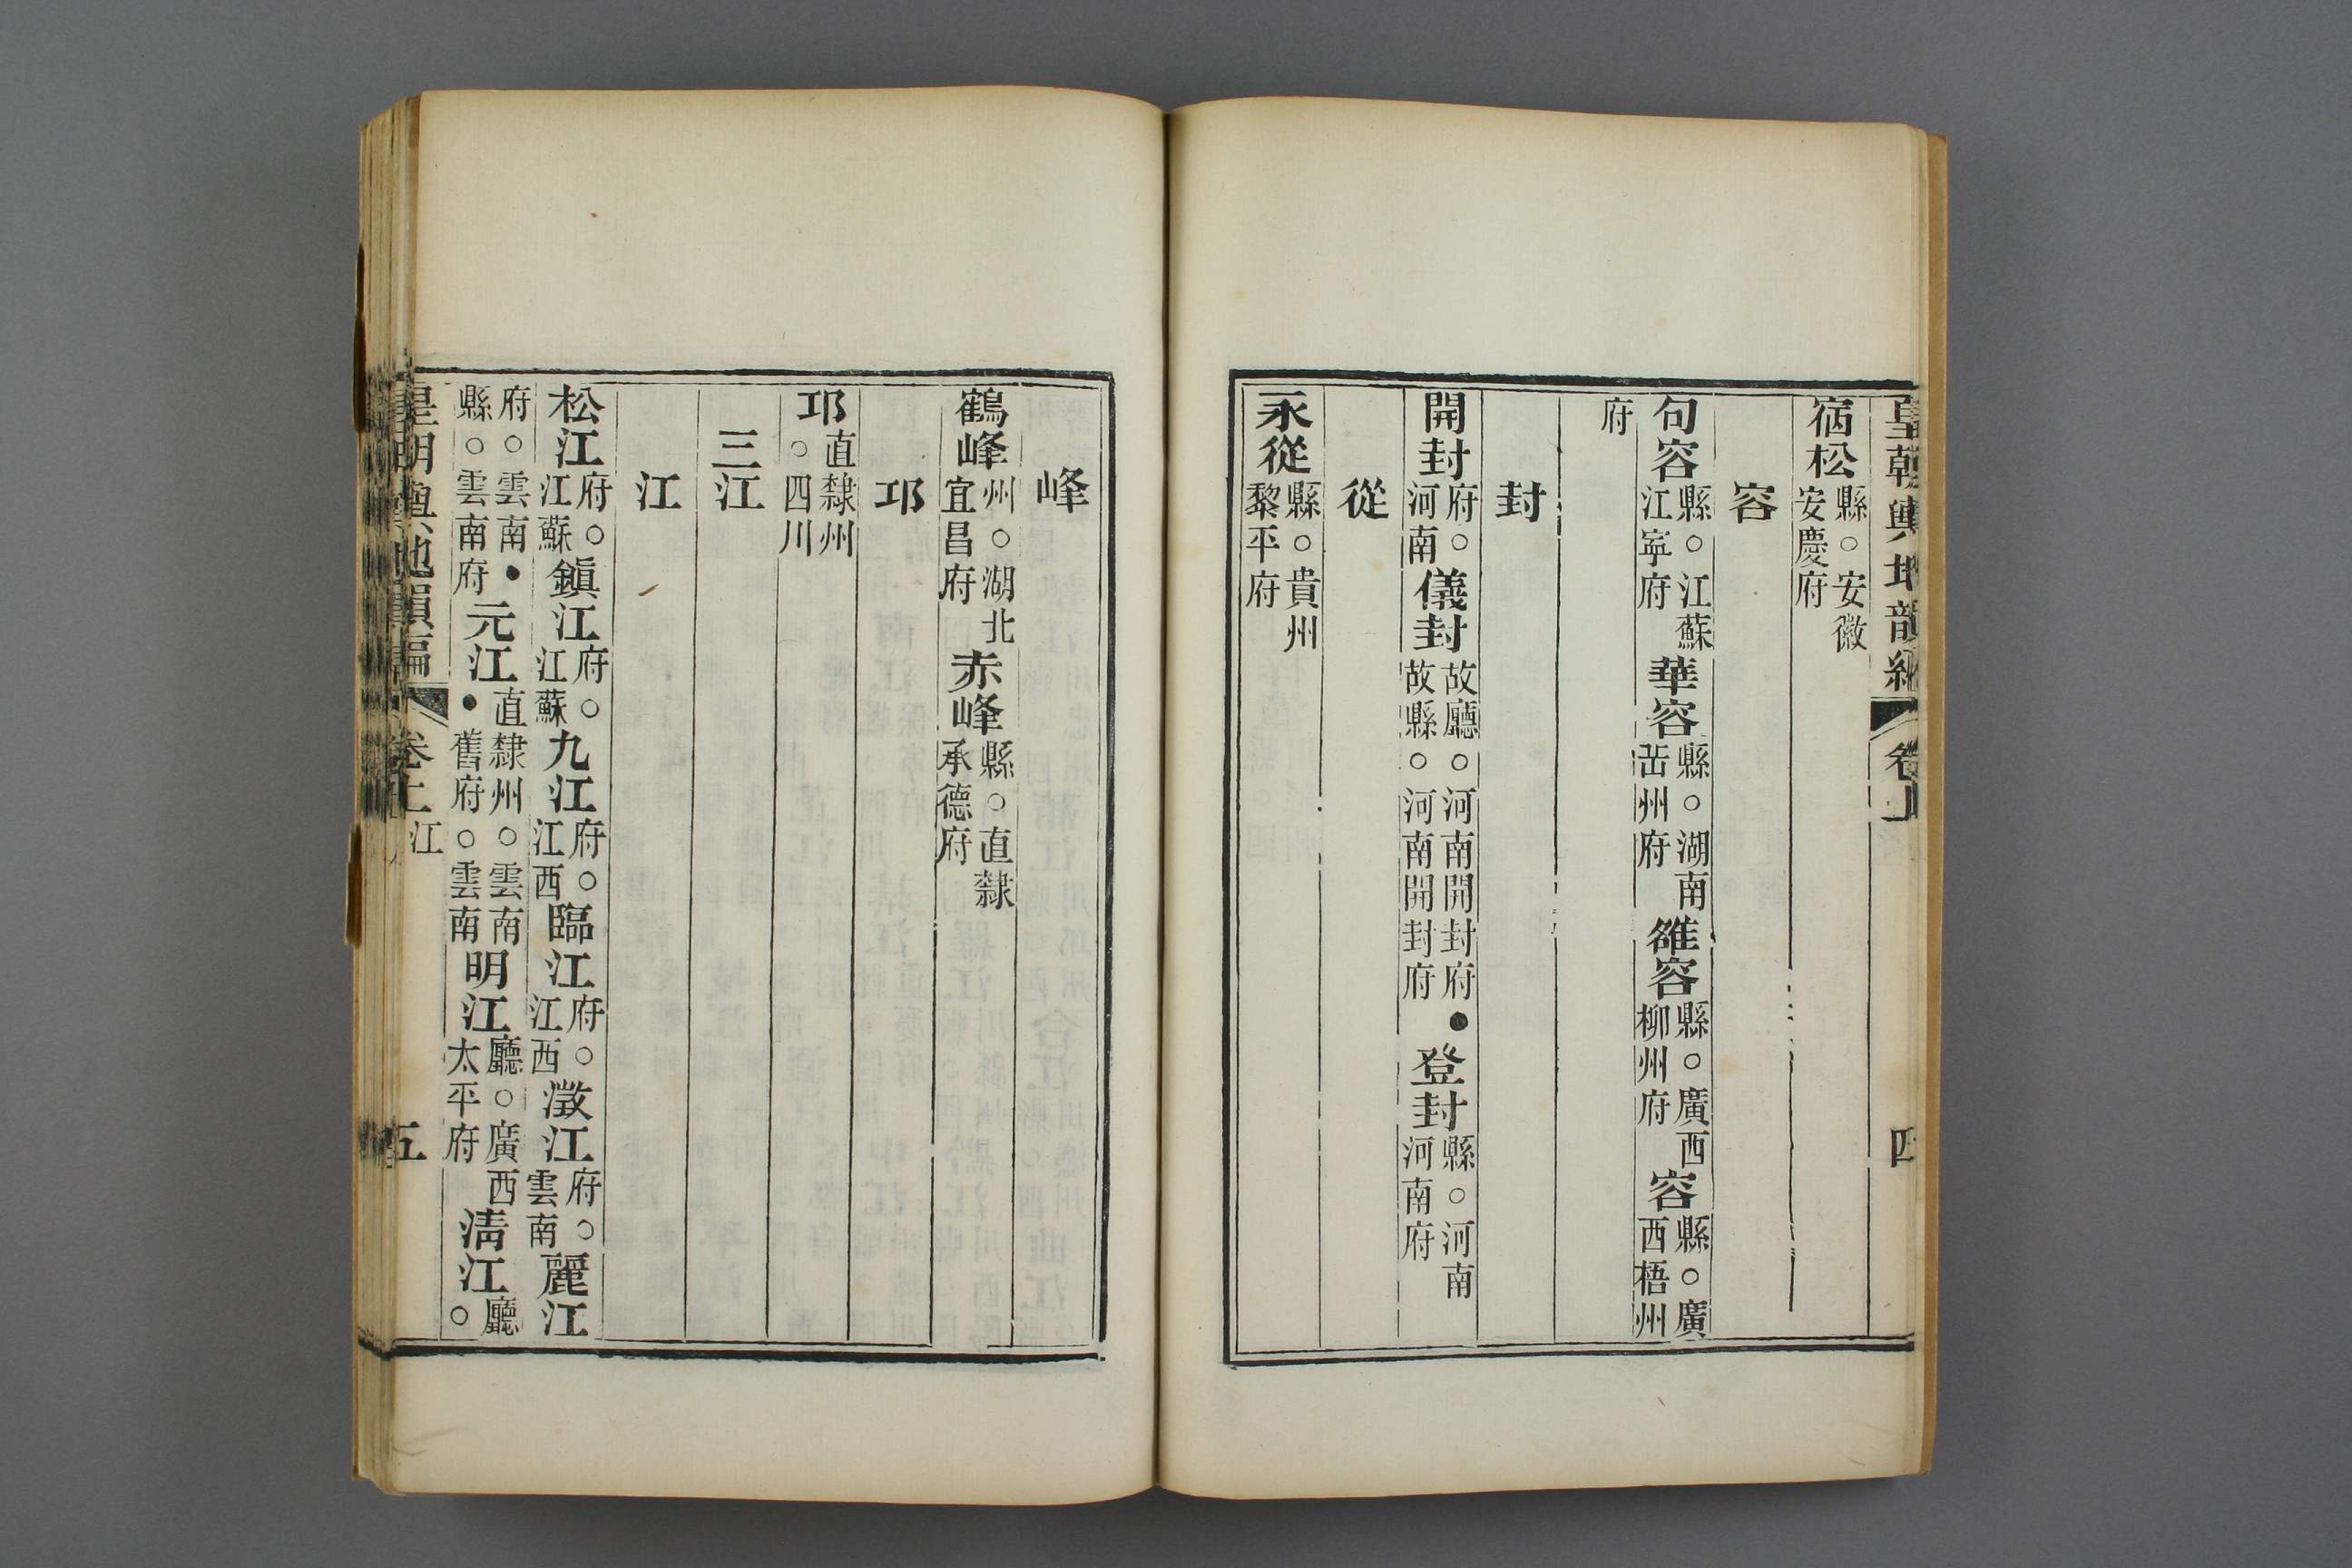 皇朝輿地韻編 卷上 四
宿松縣○安徽安慶府
容
句容縣○江蘇江寧府華容縣○湖南岳州府雒容縣○廣西柳州府容縣○廣西梧州
府
封
開封府○河南儀封故廳○河南開封府故縣○河南開封府●登封縣○河南河南府
從
永從縣○貴州黎平府
峰
鶴峰州○湖北宜昌府赤峰縣○直隸承德府
邛
邛直隸州○四川
三江
江
松江府○江蘇鎭江府○江蘇九江府○江西臨江府○江西澂江府○雲南麗江
府○雲南●縣○雲南府元江直隸州○雲南●舊府○雲南明江廳○廣西太平府淸江廳○
皇朝輿地韻編 卷上 江 五